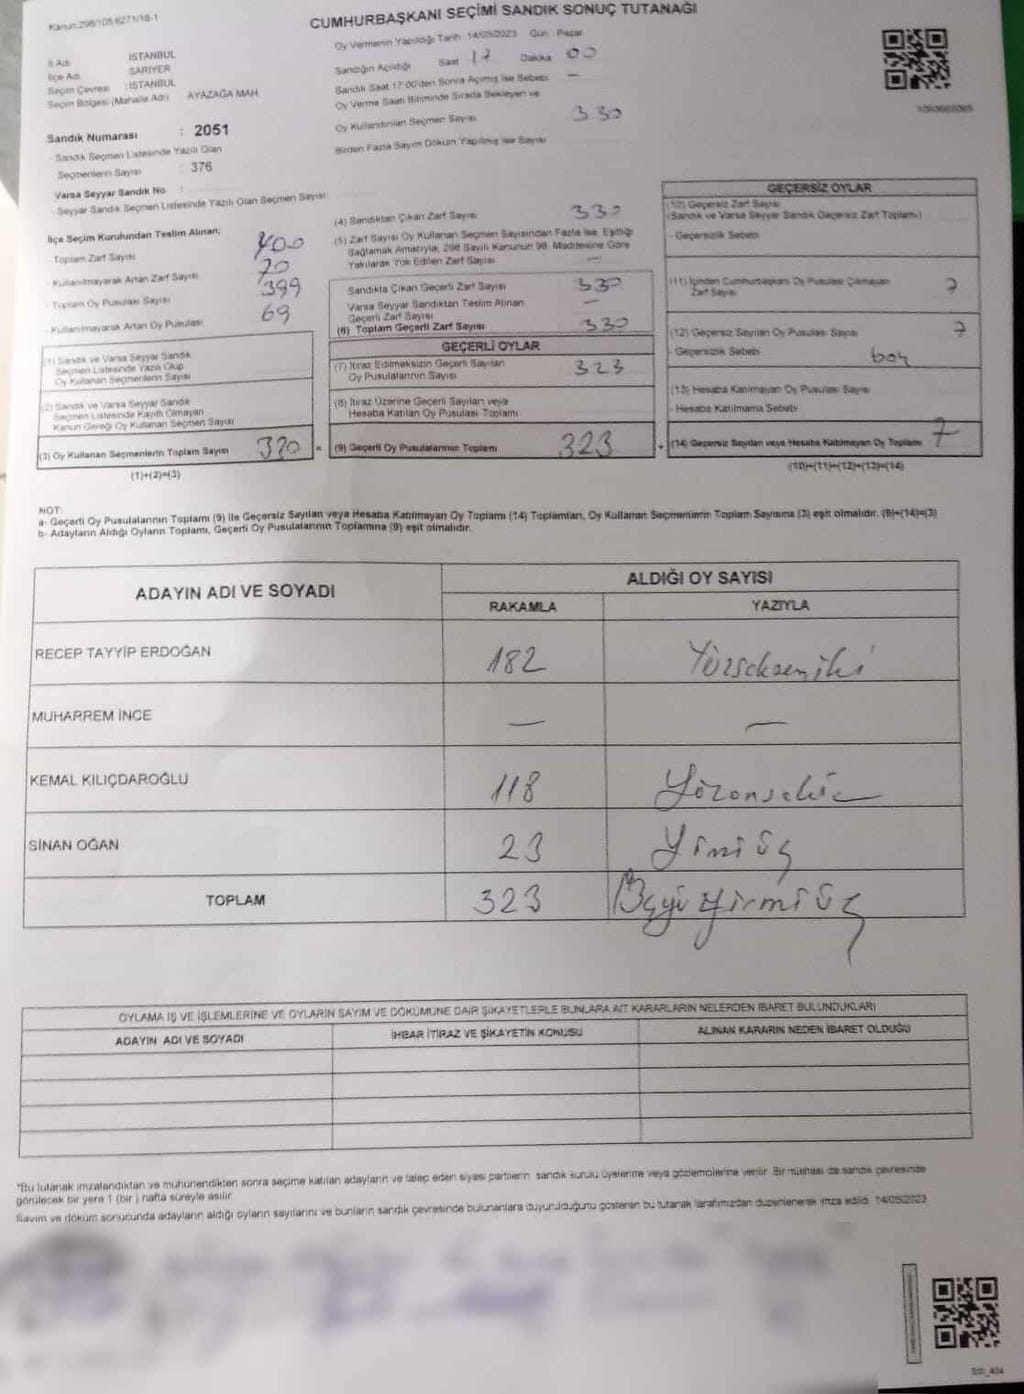 Kanun:298/105 6271/18-1
CUMHURBAŞKANI SEÇİMİ SANDIK SONUÇ TUTANAĞI
İl Adı : İSTANBUL
İlçe Adı SARIYER
Seçim Çevresi : İSTANBUL
Seçim Bölgesi (Mahalle Adı) AYAZAĞA MAH.
Sandık Numarası : 2051
- Sandık Seçmen Listesinde Yazılı Olan
Seçmenlerin Sayısı : 376
Varsa Seyyar Sandık No :
- Seyyar Sandık Seçmen Listesinde Yazılı Olan Seçmen Sayısı:
Oy Vermenin Yapıldığı Tarih 14/05/2023 Gün: Pazar
Sandığın Açıldığı Saat 17 Dakika 00
Sandık Saat 17:00'den Sonra Açılmış İse Sebebi —
Oy Verme Saati Bitiminde Sırada Bekleyen ve
Oy Kullandırılan Seçmen Sayısı 330
Birden Fazla Sayım Döküm Yapılmış İse Sayısı
İlçe Seçim Kurulundan Teslim Alınan;
- Toplam Zarf Sayısı 400
- Kullanılmayarak Artan Zarf Sayısı 70
- Toplam Oy Pusulası Sayısı 399
- Kullanılmayarak Artan Oy Pusulası 69
(1) Sandık ve Varsa Seyyar Sandık
Seçmen Listesinde Yazılı Olup
Oy Kullanan Seçmenlerin Sayısı
(2) Sandık ve Varsa Seyyar Sandık
Seçmen Listesinde Kayıtlı Olmayan
Kanun Gereği Oy Kullanan Seçmen Sayısı
(3) Oy Kullanan Seçmenlerin Toplam Sayısı 330 =
(1)+(2)=(3)
(4) Sandıktan Çıkan Zarf Sayısı 330
(5) Zarf Sayısı Oy Kullanan Seçmen Sayısından Fazla İse, Eşitliği
Sağlamak Amacıyla, 298 Sayılı Kanunun 98. Maddesine Göre
Yakılarak Yok Edilen Zarf Sayısı —
Sandıkta Çıkan Geçerli Zarf Sayısı 330
Varsa Seyyar Sandıktan Teslim Alınan
Geçerli Zarf Sayısı —
(6) Toplam Geçerli Zarf Sayısı 330
GEÇERLİ OYLAR
(7) İtiraz Edilmeksizin Geçerli Sayılan
Oy Pusulalarının Sayısı 323
(8) İtiraz Üzerine Geçerli Sayılan veya
Hesaba Katılan Oy Pusulası Toplamı
(9) Geçerli Oy Pusulalarının Toplamı 323 +
GEÇERSİZ OYLAR
(10) Geçersiz Zarf Sayısı
(Sandık ve Varsa Seyyar Sandık Geçersiz Zarf Toplamı)
- Geçersizlik Sebebi
(11) İçinden Cumhurbaşkanı Oy Pusulası Çıkmayan
Zarf Sayısı 7
(12) Geçersiz Sayılan Oy Pusulası Sayısı 7
- Geçersizlik Sebebi boş
(13) Hesaba Katılmayan Oy Pusulası Sayısı
- Hesaba Katılmama Sebebi
(14) Geçersiz Sayılan veya Hesaba Katılmayan Oy Toplamı 7
(10)+(11)+(12)+(13)=(14)
NOT:
a- Geçerli Oy Pusulalarının Toplamı (9) ile Geçersiz Sayılan veya Hesaba Katılmayan Oy Toplamı (14) Toplamları, Oy Kullanan Seçmenlerin Toplam Sayısına (3) eşit olmalıdır. (9)+(14)=(3)
b- Adayların Aldığı Oyların Toplamı, Geçerli Oy Pusulalarının Toplamına (9) eşit olmalıdır.
ADAYIN ADI VE SOYADI ALDIĞI OY SAYISI
RAKAMLA YAZIYLA
RECEP TAYYİP ERDOĞAN 182 Yüzseksen iki
MUHARREM İNCE — —
KEMAL KILIÇDAROĞLU 118 Yüzonsekiz
SİNAN OĞAN 23 Yirmi üç
TOPLAM 323 Üçyüz yirmi üç
OYLAMA İŞ VE İŞLEMLERİNE VE OYLARIN SAYIM VE DÖKÜMÜNE DAİR ŞİKAYETLERLE BUNLARA AİT KARARLARIN NELERDEN İBARET BULUNDUKLARI
ADAYIN ADI VE SOYADI İHBAR İTİRAZ VE ŞİKAYETİN KONUSU ALINAN KARARIN NEDEN İBARET OLDUĞU
*Bu tutanak imzalandıktan ve mühürlendikten sonra seçime katılan adayların ve talep eden siyasi partilerin sandık kurulu üyelerine veya gözlemcilerine verilir. Bir nüshası da sandık çevresinde
görülecek bir yere 1 (bir) hafta süreyle asılır.
Sayım ve döküm sonucunda adayların aldığı oyların sayılarını ve bunların sandık çevresinde bulunanlara duyurulduğunu gösteren bu tutanak tarafımızdan düzenlenerek imza edildi. 14/05/2023